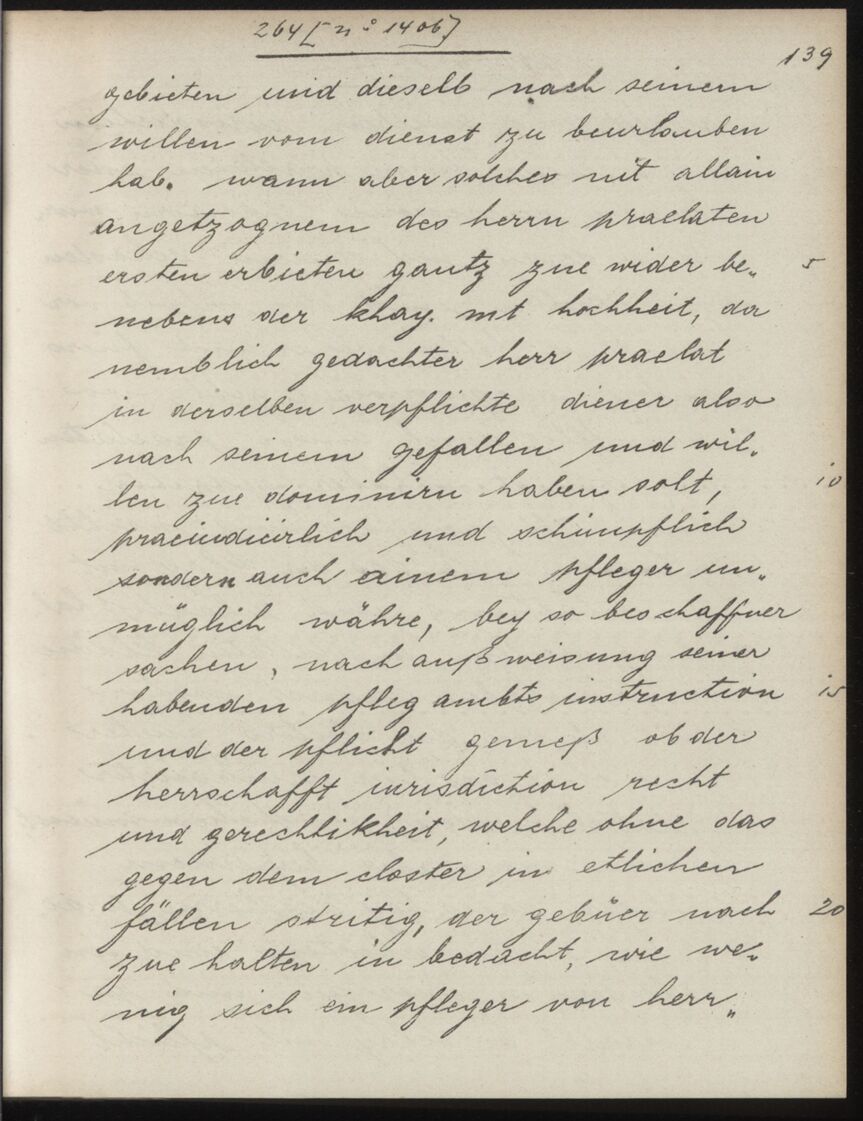 264 [ nº 1406 ]
139
gebieten und dieselb nach seinem
willen vom dienst zu beurlauben
hab. wann aber solches nit allain
angetzognem des herrn praelaten
ersten erbieten gantz zue wider be„ 5
nebens der khay. mt hochheit, da
nemblich gedachter herr praelat
in derselben verpflichte diener also
nach seinem gefallen und wil„
len zue dominirn haben solt, 10
praeiudicirlich und schimpflich
sondern auch einem pfleger un„
müglich währe, bey so beschaffner
sachen, nach außweisung seiner
habenden pfleg ambts instruction 15
und der pflicht gemeß ob der
herrschafft iurisdiction recht
und gerechtikheit, welche ohne das
gegen dem closter in etlichen
fällen stritig, der gebüer nach 20
zue halten in bedacht, wie we„
nig sich ein pfleger von herr„